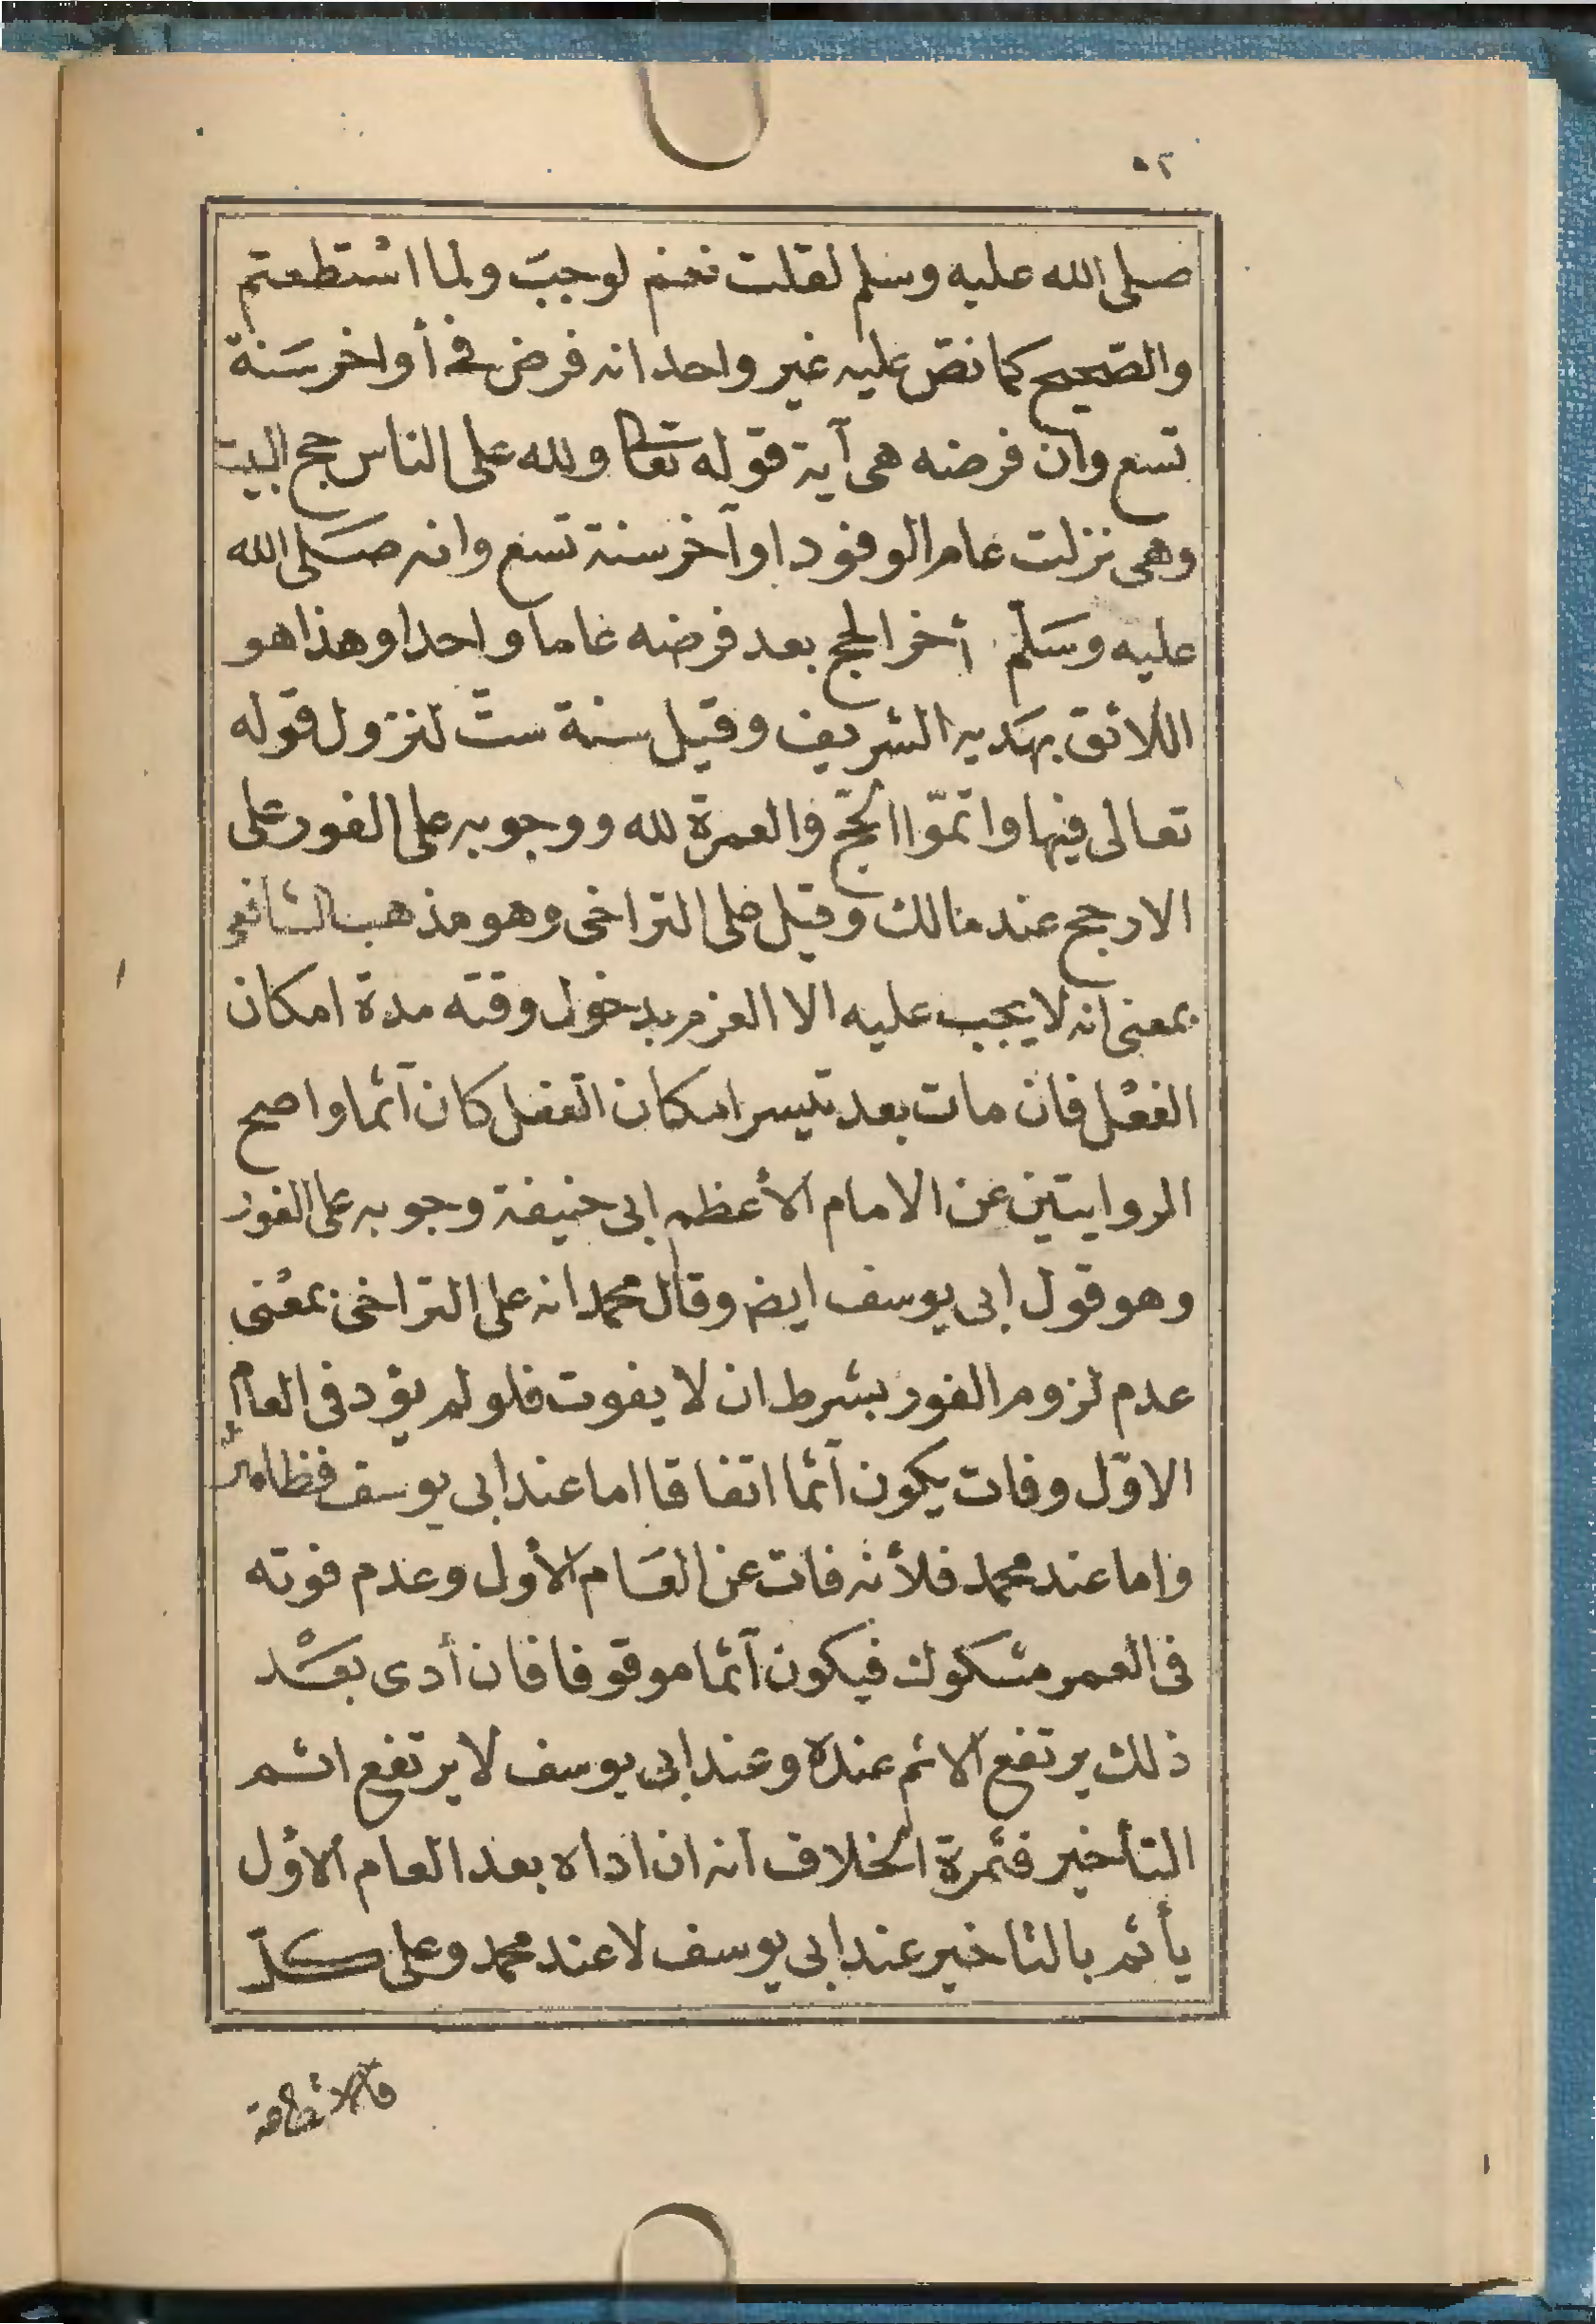 ٥٢
صلى الله عليه وسلم لقلت نعم لوجبت ولما استطعتم
والصحيح كما نصّ عليه غير واحد انه فرض في أواخر سَنة
تسع وان فرضه هى آية قوله تعالى ولله على الناس حج البيت
وهى نزلت عام الوفود اوآخر سنة تسع وانه صَلى الله
عليه وسَلّم أخر الحج بعد فرضه عاما واحدا وهذا هو
اللائق بهَديه الشريف وقيل سنة ستّ لنزول قوله
تعالى فيها واتمّوا الحجّ والعمرة لله ووجوبه على الفور على
الارجح عند مالك وقيل على التراخى وهو مذهب الشافعى
بمعنى انه لا يجب عليه الا العزم بدخول وقته مدة امكان
الفعْل فان مات بعد تيسر امكان الفعل كان آثما واصح
الروايتين عن الامام الأعظم ابى حنيفة وجوبه على الفور
وهو قول ابى يوسف ايض وقال محمد انه على التراخى بمعْنى
عدم لزوم الفور بشرط ان لا يفوت فلو لم يؤد فى العام
الاوّل وفات يكون آثما اتفاقا اما عند ابى يوسف فظاهر
واما عند محمد فلأنه فات عن العَام الأول وعدم فوته
فى العمر مشكوك فيكون آثما موقوفا فان أدى بعَْد
ذلك يرتفع الاثم عنده وعند ابى يوسف لا يرتفع اثم
التأخير فثمرة الخلاف انه ان اداه بعد العام الأول
يأثم بالتاخير عند ابى يوسف لا عند محمد وعلى كلّ